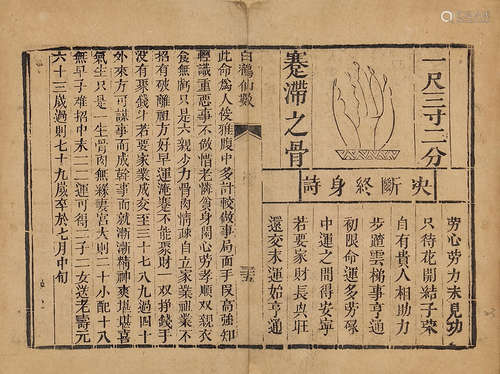 一尺三寸二分
蹇滯之骨
决斷終身詩
勞心勞力未見功
只待花開結子榮
自有貴人相助力
步踏雲梯事亨通
初限命運多勞碌
中運之間得安寧
若要財家長旺
還交末運始亨通
白鶴仙數
此命為人伎雅腹中多計較做事局面手段高強知
輕識重惡事不做惜老憐貧身閒心勞孝順双親衣
食無虧只是六親少力骨肉情疎自立家業祖業不
招有破離祖方好早運淹蹇不能聚財一双掙錢手
沒有聚錢斗若要家業成交至三十七八九過四十
外來方可謀事而成幹事而就漸漸精神爽堪堪喜
氣生只是一生骨肉無緣妻宮大則二十小配十八
無早子雄招中末一二運可得二子一女送老壽元
六十三歲過則七十九歲卒於七月中旬